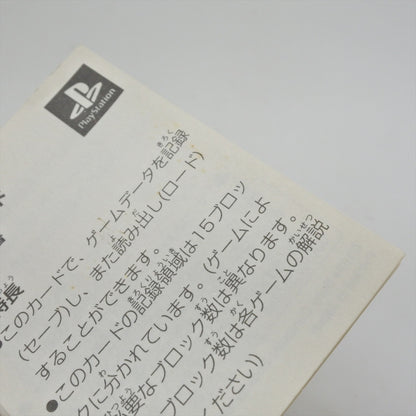 PlayStation
長
●このカードで、ゲームデータを記録
(セーブ)し、また読み出し(ロード)
することができます。
●このカードの記録領域は15ブロッ
クに分かれています。(ゲームによ
要なブロック数は異なります。
ブロック数は各ゲームの解説
ください)